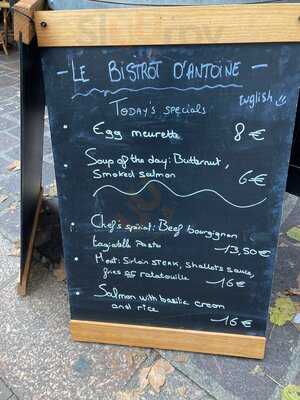 - LE BISTRÔT D'ANTOINE -
Today's specials English :)
. Egg meurette 8€
. Soup of the day: Butternut,
smoked salmon 6€
. Chef's spécial: Beef bourgignon
tagliatelle Pasta 13,50€
. Meat: Sirloin STEAK, shallots sauce,
fries or ratatouille 16€
. Salmon with basilic cream
and rice 16€